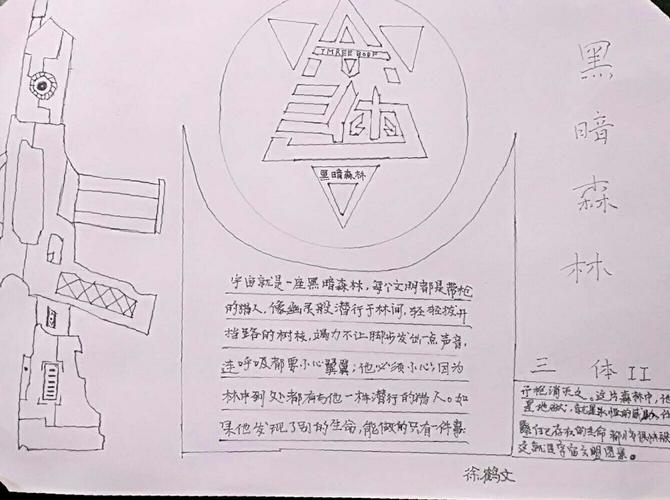 THREE BODY
三体
黑暗森林
黑暗森林
宇宙就是一座黑暗森林，每个文明都是带枪
的猎人，像幽灵般潜行于林间，轻轻拨开
挡路的树枝，竭力不让脚步发出一点声音，
连呼吸都要小心翼翼；他必须小心，因为
林中到处都有与他一样潜行的猎人。如
果他发现了别的生命，能做的只有一件事
三体II
开枪消灭之。这片森林中，他
是地狱，就是永恒的威胁，
露自己存在的生命都将很快被
这就是宇宙文明图景。
徐鹤文